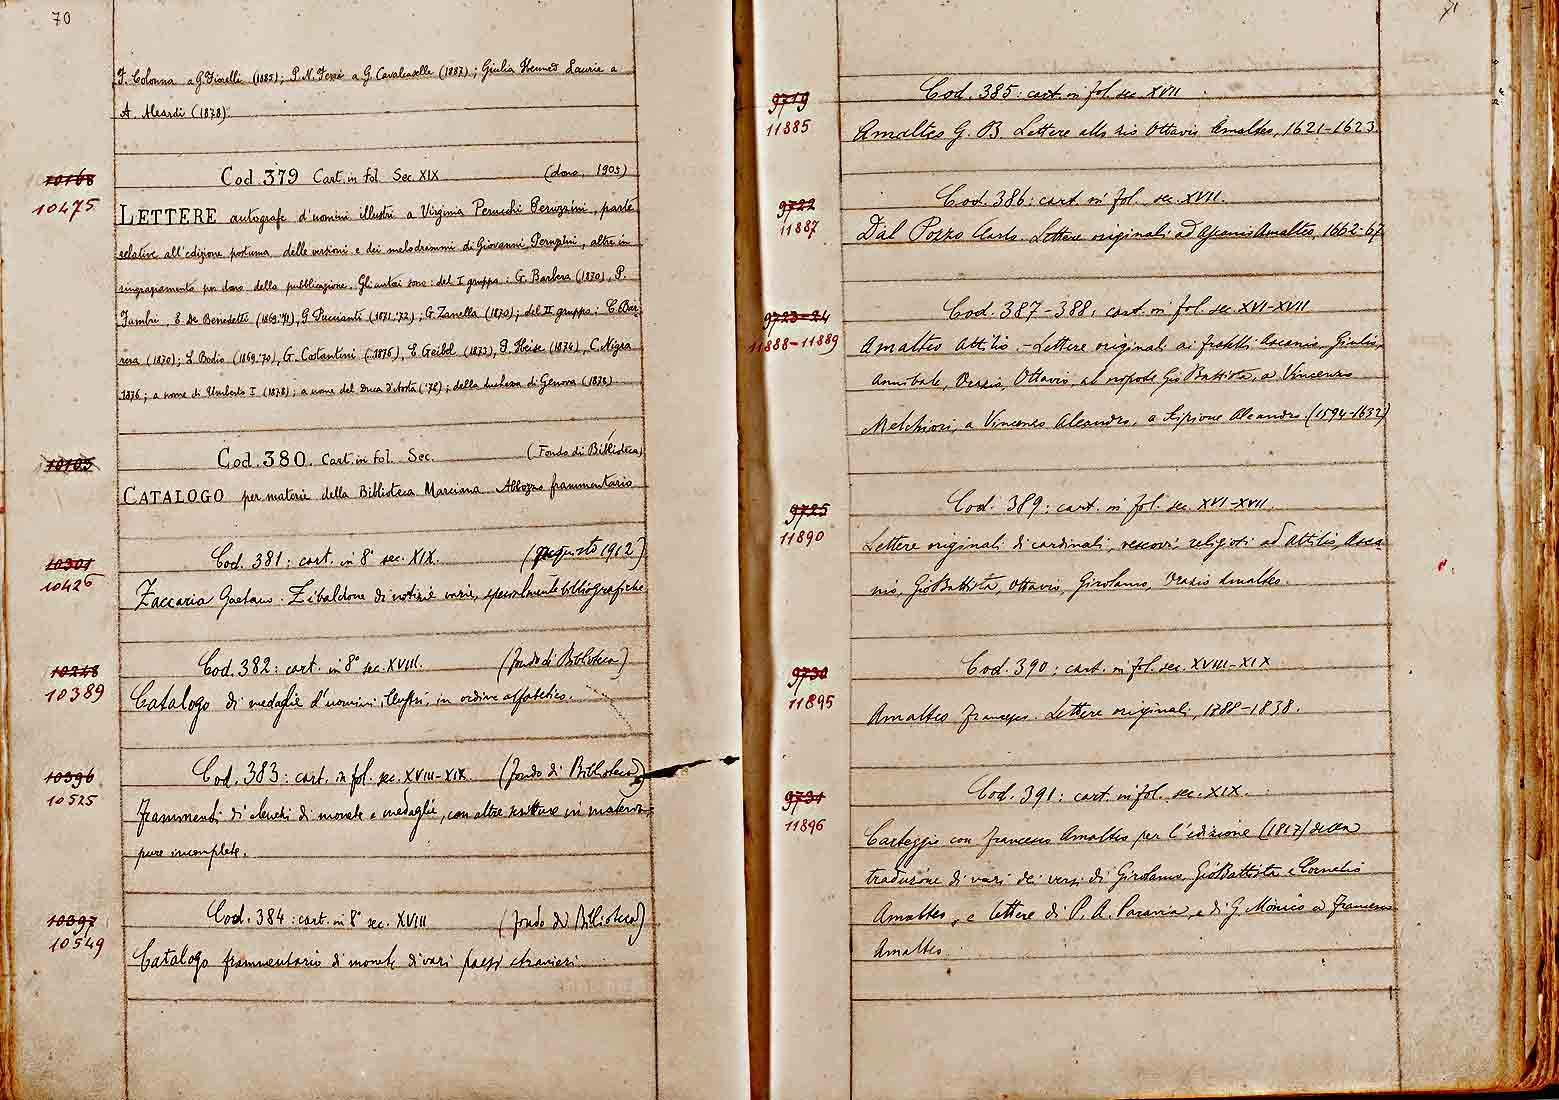 70
F. Colonna a G. Fiorelli (1885); P. N. Ferri a G. Cavalcaselle (1887); Giulia Laurie a
A. Aleardi (1878)
10168
10475
Cod. 379 Cart. in fol. Sec. XIX (dono, 1905)
LETTERE autografe d'uomini illustri a Virginia Perucchi Peruzzini, parte
relative all'edizione postuma delle versioni e dei melodrammi di Giovanni Peruzzini, altre in
ringraziamento per dono della pubblicazione. Gli autori sono: del I gruppo: G. Barbera (1870), P.
Fambri, E. De Benedetti (1869-71), G. Puccianti (1871-72); G. Zanella (1870); del II gruppo: C. Bar-
rera (1870); L. Bodio (1869-70), G. Costantini (1876), E. Geibel (1873), P. Heise (1874), C. Nigra
1876; a nome di Umberto I (1878); a nome del Duca d'Aosta ('78); della duchessa di Genova (1878)
10105
Cod. 380. Cart. in fol. Sec. (Fondo di Biblioteca)
CATALOGO per materie della Biblioteca Marciana Abbozzo frammentario
10301
10426
Cod. 381: cart. in 8° sec. XIX. (acquisto 1912)
Zaccaria Gaetano. Zibaldone di notizie varie, specialmente bibliografiche
10248
10389
Cod. 382: cart. in 8° sec. XVIII. (fondo di Biblioteca)
Catalogo di medaglie d'uomini illustri, in ordine alfabetico.
10396
10525
Cod. 383: cart. in fol. sec. XVIII-XIX (fondo di Biblioteca)
Frammenti di elenchi di monete e medaglie, con altre scritture in materia,
pure incomplete.
10397
10549
Cod. 384: cart. in 8° sec. XVIII (fondo di Biblioteca)
Catalogo frammentario di monete di vari paesi stranieri.
71
9719
11885
Cod. 385: cart. in fol. sec. XVII
Amalteo G. B. Lettere allo zio Ottavio Amalteo, 1621-1623.
9722
11887
Cod. 386: cart. in fol. sec. XVII.
Dal Pozzo Carlo. Lettere originali ad Ascanio Amalteo, 1662-67
9723-24
11888-11889
Cod. 387-388: cart. in fol. sec. XVI-XVII
Amalteo Attilio. - Lettere originali ai fratelli Ascanio, Giulio,
Annibale, Orazio, Ottavio, al nipote Gio Battista, a Vincenzo
Melchiori, a Vincenzo Aleandro, a Scipione Aleandro (1594-1632)
9725
11890
Cod. 389: cart. in fol. sec. XVI-XVII.
Lettere originali di cardinali, vescovi, religiosi ad Attilio, Asca-
nio, Gio Battista, Ottavio, Girolamo, Orazio Amalteo.
9730
11895
Cod. 390: cart. in fol. sec. XVIII-XIX
Amalteo Francesco. Lettere originali, 1788-1838.
9731
11896
Cod. 391: cart. in fol. sec. XIX.
Carteggio con Francesco Amalteo per l'edizione (1817) della
traduzione di vari dei versi di Girolamo, Gio Battista e Cornelio
Amalteo, e lettere di P. A. Paravia e di G. Monico a Francesco
Amalteo.